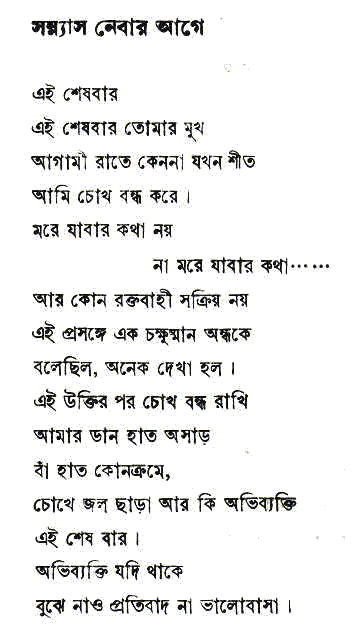 সন্ন্যাস নেবার আগে
এই শেষবার
এই শেষবার তোমার মুখ
আগামী রাতে কেননা যখন শীত
আমি চোখ বন্ধ করে ।
মরে যাবার কথা নয়
না মরে যাবার কথা……
আর কোন রক্তবাহী সক্রিয় নয়
এই প্রসঙ্গে এক চক্ষুষ্মান অন্ধকে
বলেছিল, অনেক দেখা হল ।
এই উক্তির পর চোখ বন্ধ রাখি
আমার ডান হাত অসাড়
বাঁ হাত কোনক্রমে,
চোখে জল ছাড়া আর কি অভিব্যক্তি
এই শেষ বার ।
অভিব্যক্তি যদি থাকে
বুঝে নাও প্রতিবাদ না ভালোবাসা ।